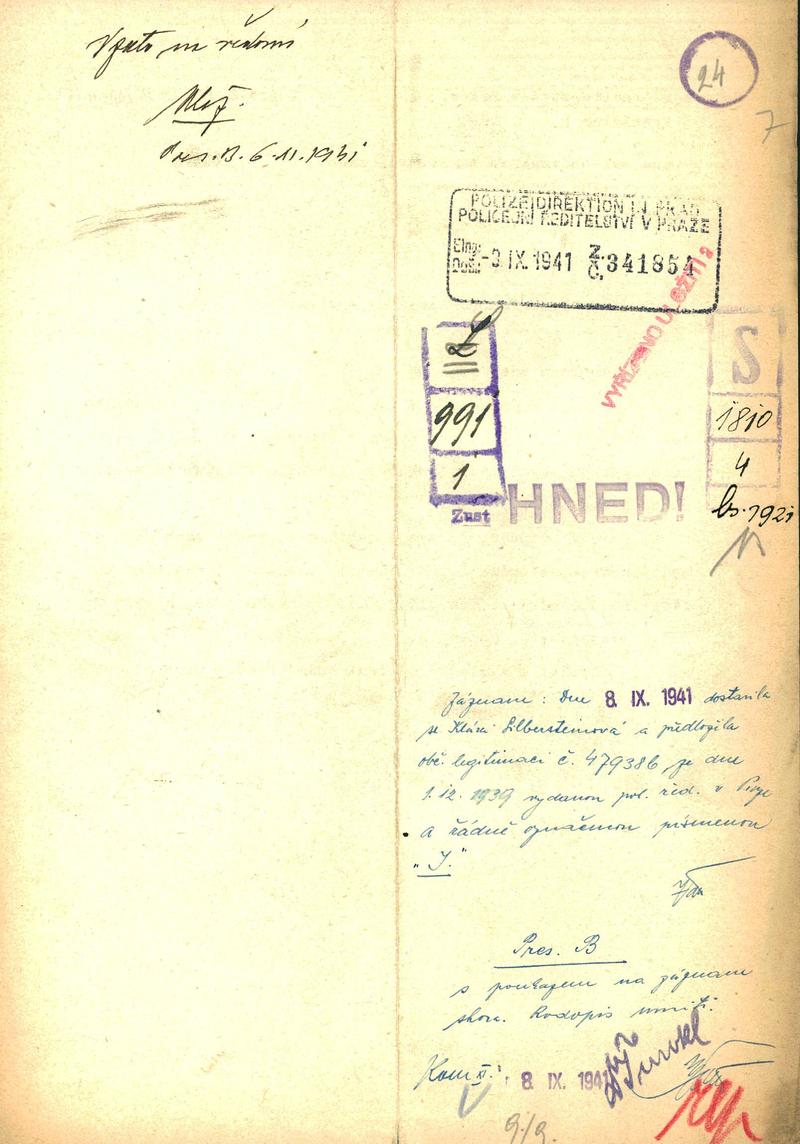 Vzato na vědomí
Pres. B. 6.11.1941
24
7
POLIZEIDIREKTION IN PRAG
POLICEJNÍ ŘEDITELSTVÍ V PRAZE
Eing:
Došl:
-3 IX. 1941
Z.
Č.
341854
VYŘÍZENO
991
1
Zust
S
1810
4
HNED!
Záznam: Dne 8. IX. 1941 dostavila
se Klára Silbersteinová a předložila
obč. legitimaci č. 479386 ze dne
1. 12. 1939 vydanou pol. řed. v Praze
a řádně označenou písmenou
"J."
Pres. B
s poukazem na záznam
shora. Rodopis
8. IX. 1941
9./9.